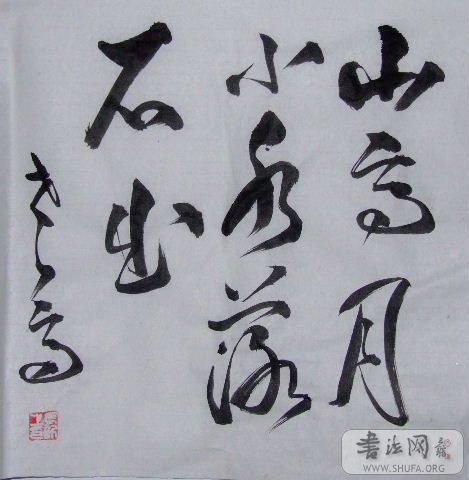 山高月
小水落
石出
书法网
WWW.SHUFA.ORG